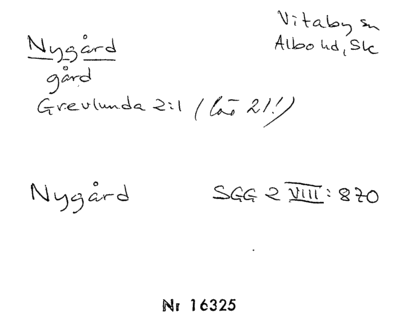 Nygård
Vitaby sn
Albo hd, Sk
gård
Grevlunda 2:1 (läs 21!)
Nygård SGG 2 VIII: 870
Nr 16325